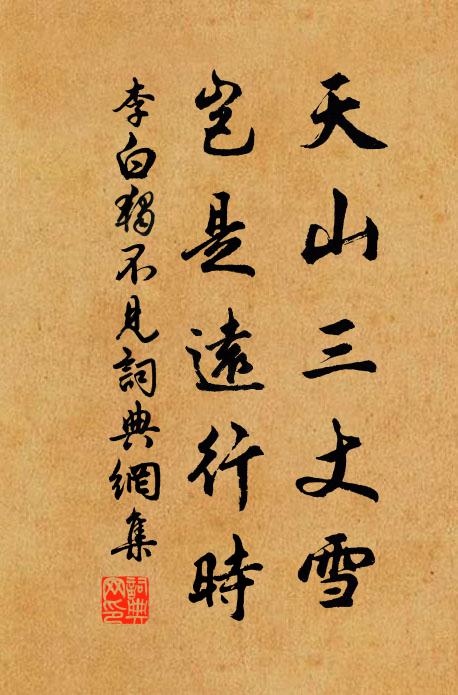 天山三丈雪
豈是遠行時
李白獨不見詞典網集
詞典网印